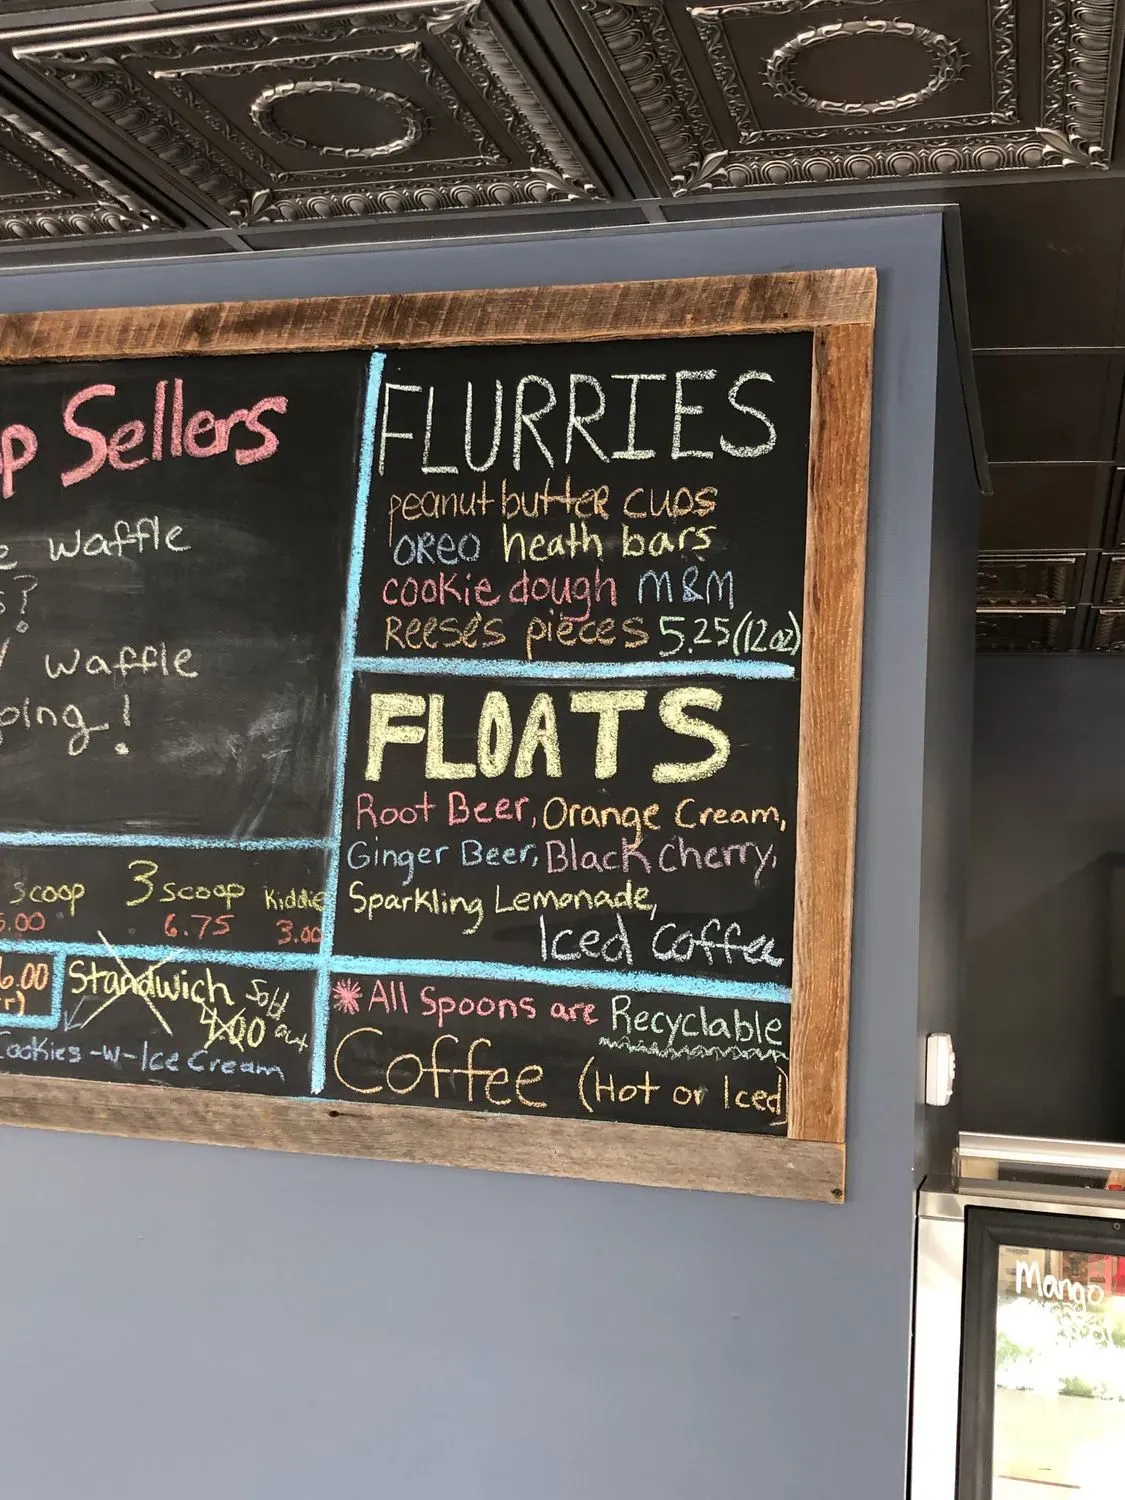 p Sellers
e waffle
s?
y waffle
oing!
scoop 3 scoop Kiddie
6.75 3.00
6.00
Standwich Sold
4.00 out
Cookies -w- Ice Cream
FLURRIES
peanut butter cups
OREO heath bars
cookie dough M&M
REESE'S pieces 5.25 (12 oz)
FLOATS
Root Beer, Orange Cream,
Ginger Beer, Black Cherry,
Sparkling Lemonade,
Iced Coffee
*All Spoons are Recyclable
Coffee (Hot or Iced)
Mango